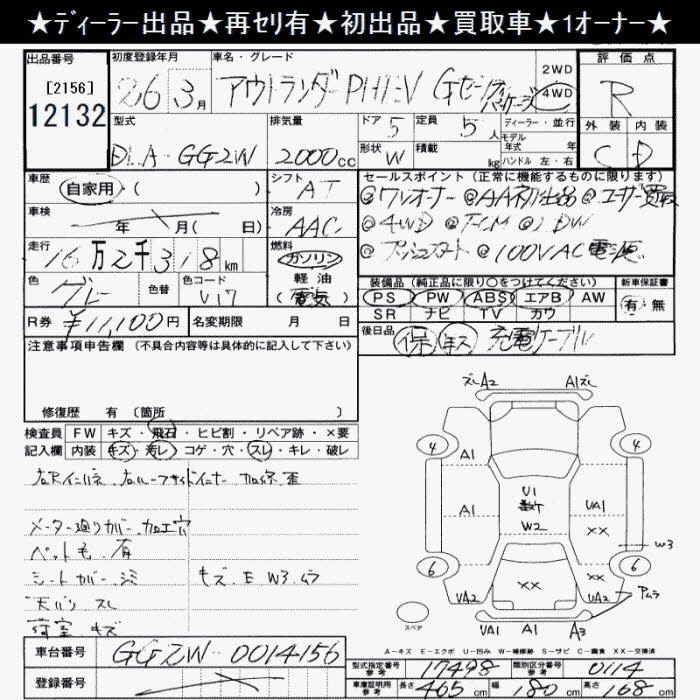 ★ディーラー出品★再セリ有★初出品★買取車★1オーナー★
出品番号
[2156]
12132
初度登録年月
26年 3月
車名・グレード
アウトランダーPHEV Gセーフティパッケージ
2WD
4WD
評価点
R
外装 内装
C D
型式
DLA-GG2W
排気量
2000cc
ドア 5
形状 W
定員 5人
積載 kg
ディーラー・並行
モデル年式 年
ハンドル 左・右
車歴
自家用・( )
シフト
AT
車検
年 月( 日)
冷房
AAC
走行
16万2千318km
燃料
ガソリン
軽油
(電気)
色
グレー
色替
色コード
U17
R券 ¥11,100円
名変期限 月 日
セールスポイント(正常に機能するものに限ります)
@ワンオーナー @AA初出品 @ユーザー買取
@4WD @FCM @LDW
@プッシュスタート @100VAC電源
装備品(純正品に限り○をつけてください)
PS PW ABS エアB AW
SR ナビ TV カワ
新車保証書
有・無
後日品
保 取 充電ケーブル
注意事項申告欄 (不具合内容等は具体的に記入して下さい)
修復歴 有 〔箇所 〕
検査員記入欄
FW キズ・飛石・ヒビ割・リペア跡・×要
内装 キズ・汚レ・コゲ・穴・スレ・キレ・破レ
右Rインパネ 右ルーフサイドインナー 加修歪
メーター廻りカバー加工穴
ペット毛 有
シートカバー シミ
キズ.E W3.ムラ
天バリ スレ
荷室 キズ
ズレA2 A1ズレ
4 4
A1
A1
U1
W2
UA1
XX
W3
6 6
XX
UA2 UA2
アムラ
スペア
UA1 A1 A3
A-キズ E-エクボ U-凹み W-補修跡 S-サビ C-腐食 XX-交換済
車台番号
GG2W-0014156
登録番号
型式指定番号 参考 17498
類別区分番号 参考 0114
車庫証明用 参考 長さ 465cm 幅 180cm 高さ 168cm